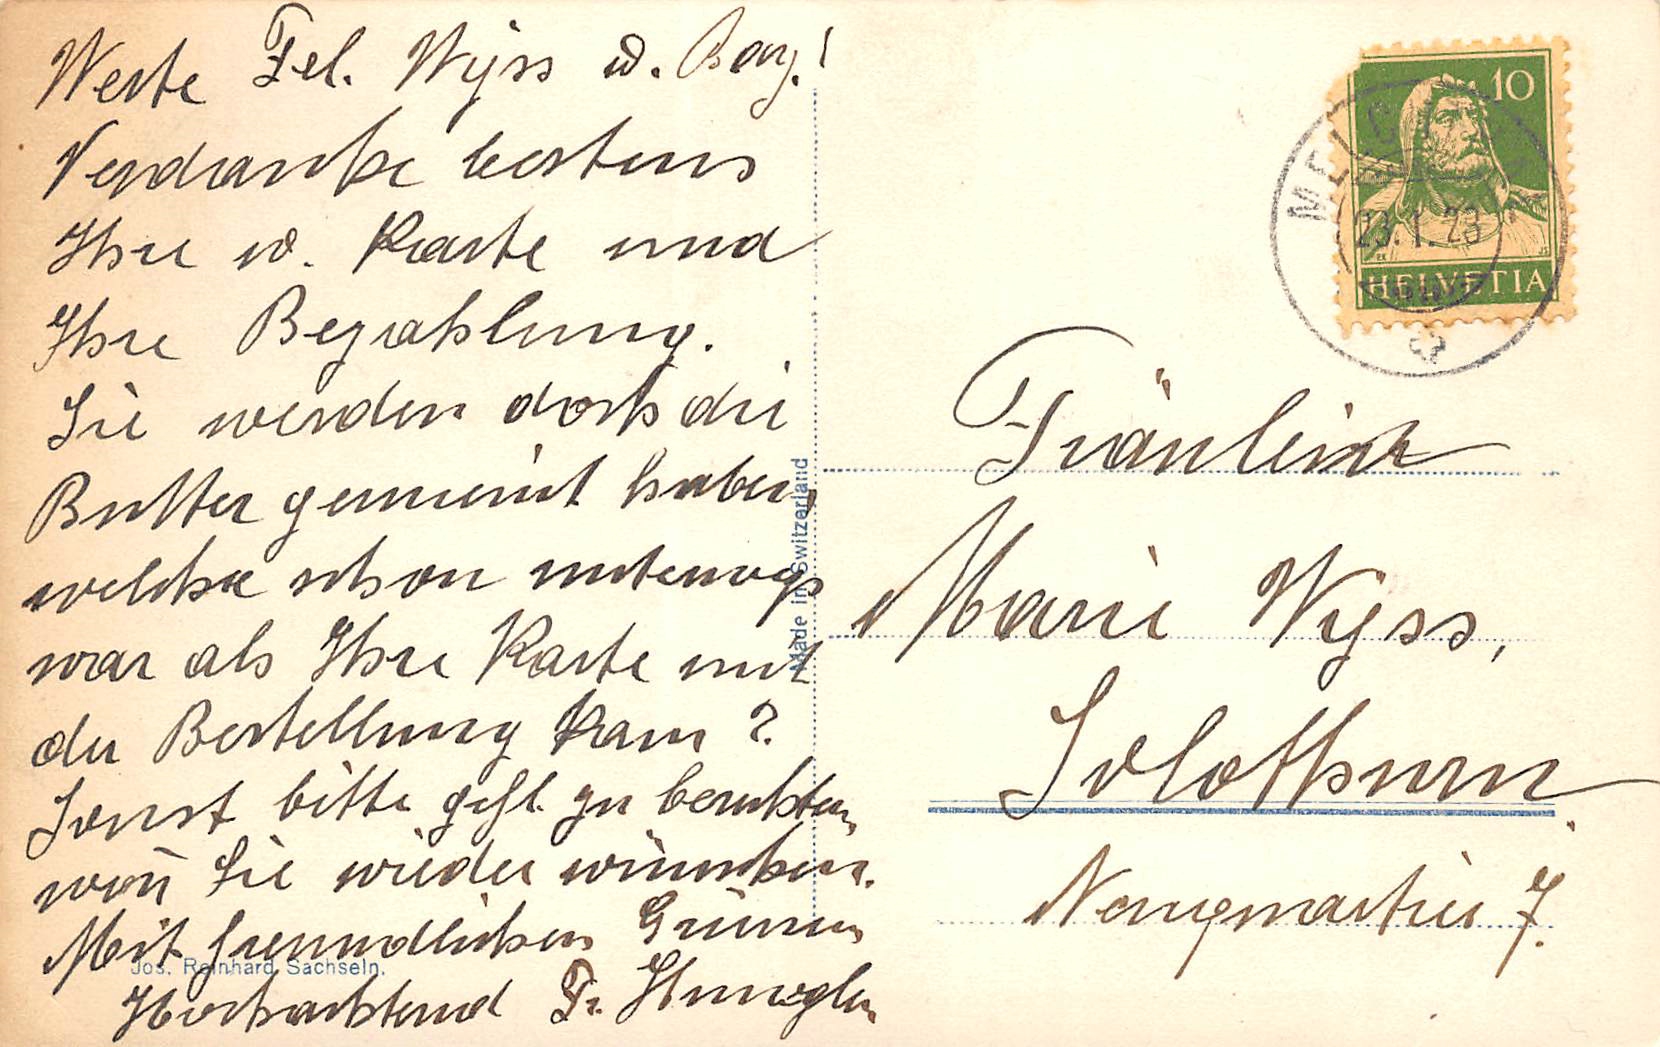 Werte Frl. Wyss w.
Verdanke bestens
Ihre w. Karte und
Ihre Bezahlung.
Sie werden doch die
Butter gemeint haben,
welche schon unterwegs
war als Ihre Karte mit
der Bestellung kam?
Sonst bitte gefl. zu berichten,
wen̄ Sie wieder wünschen.
Mit freundlichen Grüssen
Hochachtend Fr.
Jos. Reinhard, Sachseln.
Made in Switzerland
10
HELVETIA
23.1.23
Fräulein
Marie Wyss,
Solothurn.
7.